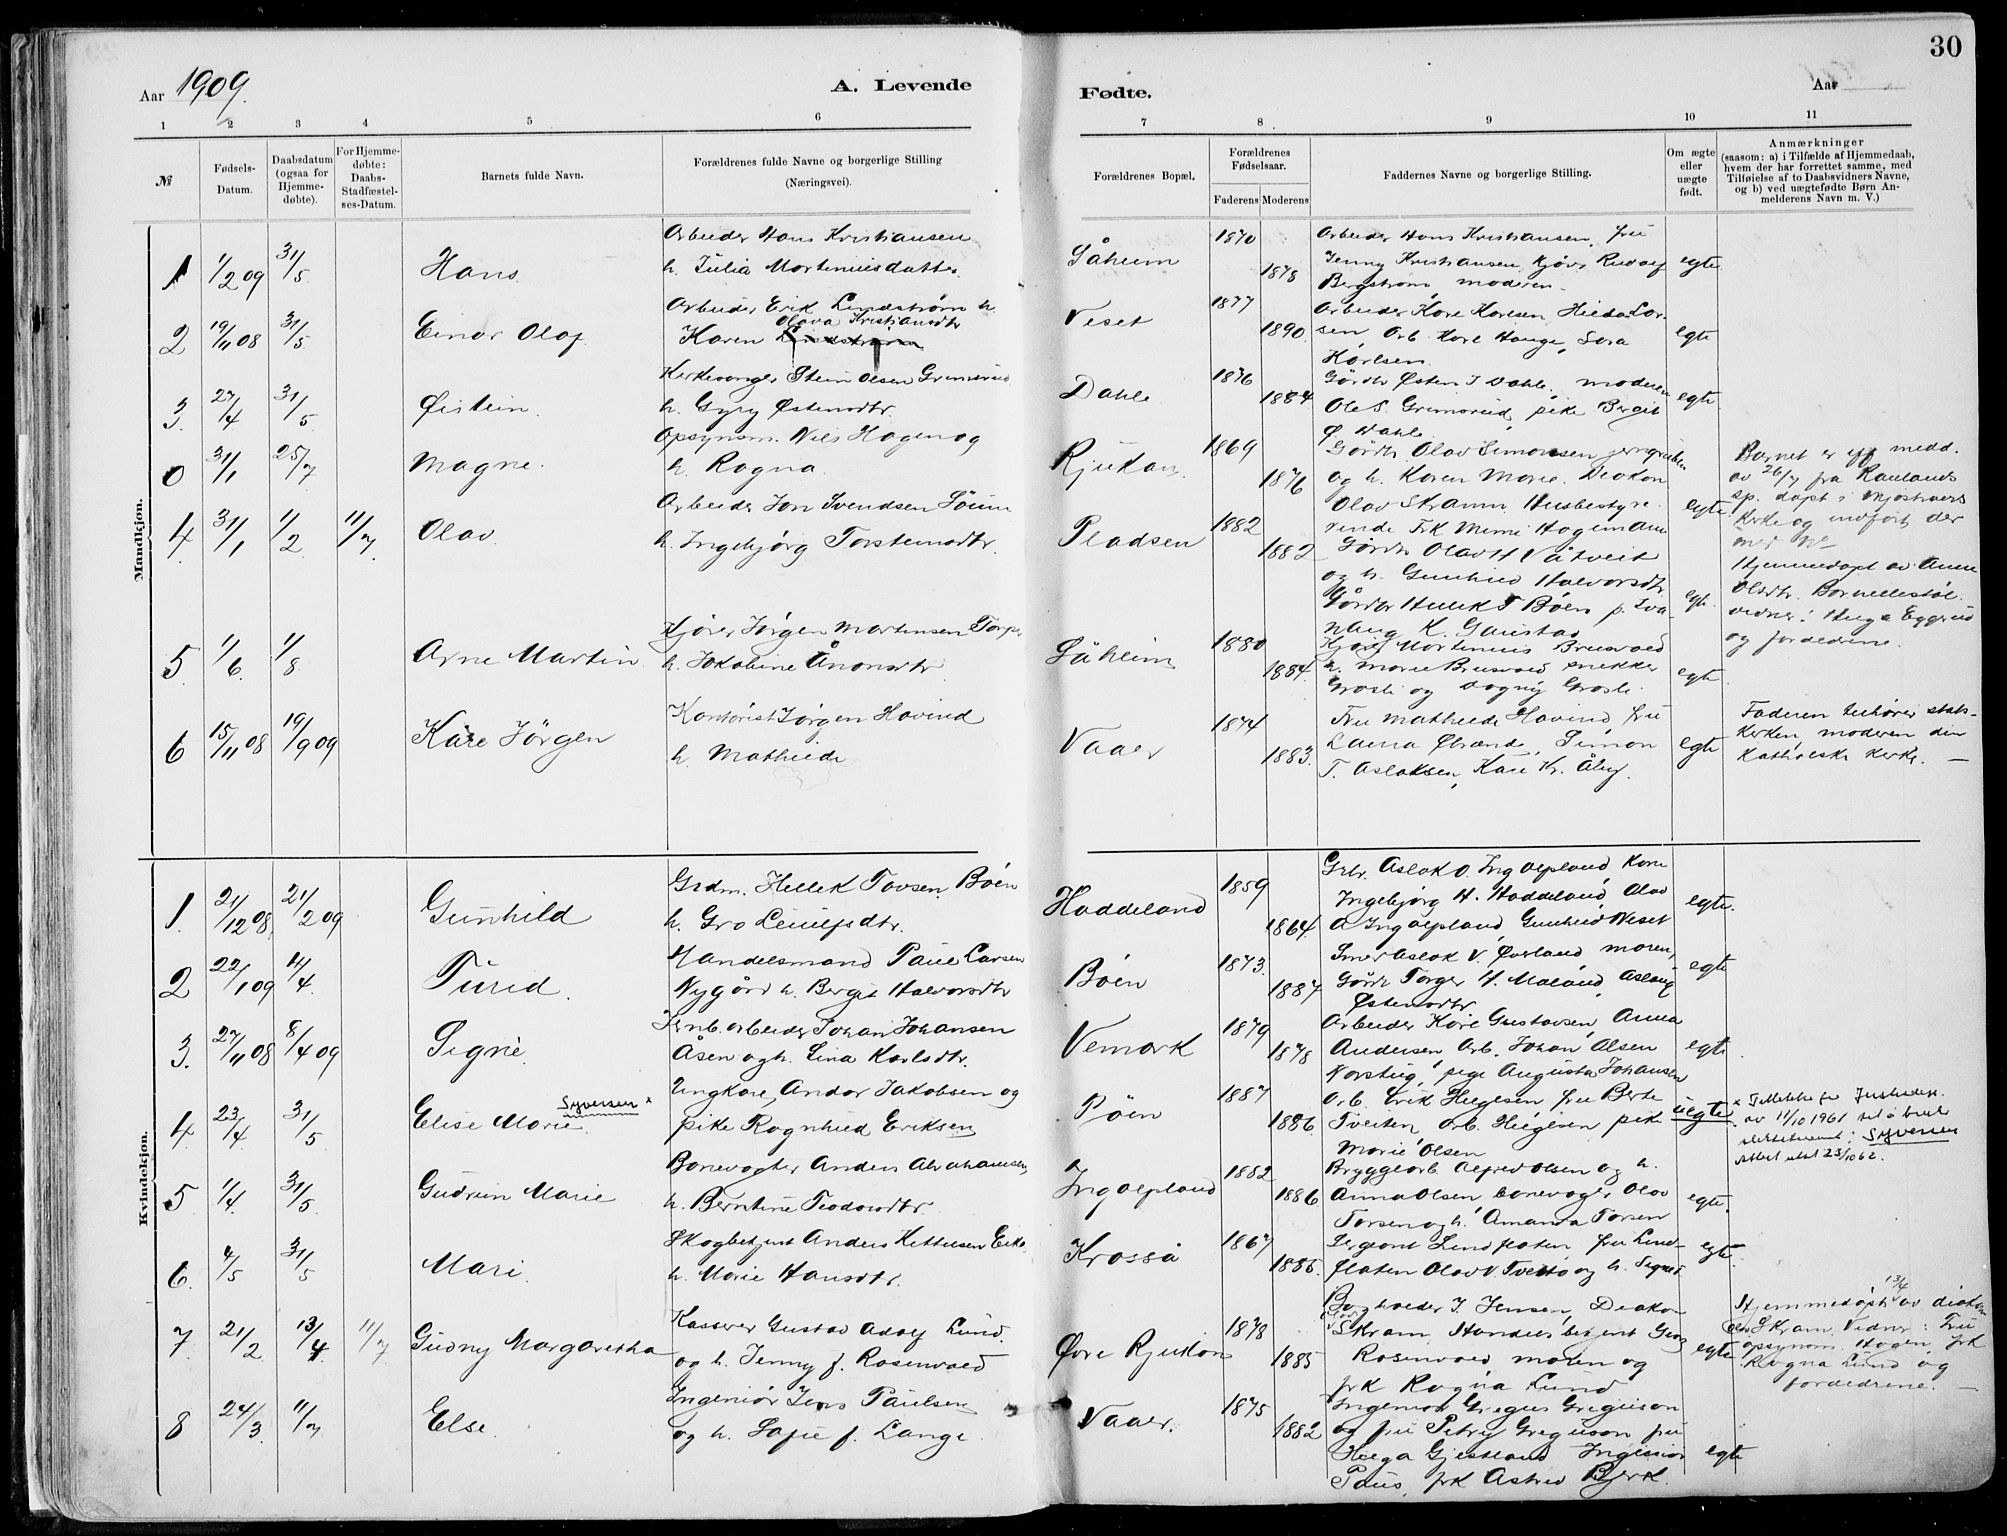 30
Aar 1909.
A. Levende
Fødte.
Aar
1 2 3 4 5 6
7 8 9 10 11
№
Fødsels-Datum.
Daabsdatum (ogsaa for Hjemmedøbte).
For Hjemmedøbte: Daabs-Stadfæstelses-Datum.
Barnets fulde Navn.
Forældrenes fulde Navne og borgerlige Stilling (Næringsvei).
Forældrenes Bopæl.
Forældrenes Fødselsaar.
Faderens Moderens
Faddernes Navne og borgerlige Stilling.
Om ægte eller uægte født.
Anmærkninger
(saasom: a) i Tilfælde af Hjemmedaab, hvem der har forrettet samme, med Tilføielse af to Daabsvidners Navne, og b) ved uægtefødte Børn Anmelderens Navn m. V.)
Mandkjøn.
1 1/2 09 31/5 Hans
Arbeider Hans Kristiansen
h. Julia Mortensdatter
Såheim 1870 1878
Arbeider Hans Kristiansen, fru
Jenny Kristiansen, kjører Rudolf
Bergstrøm, moderen
egte
2 19/11 08 31/5 Einar Olaf
Arbeider Erik Lindstrøm h.
Olava Kristiansdtr
Karen Lindstrøm
Veset 1877 1890
Arbeider Kare Karlsen, Hilda Larsen, Arb. Karl Hauge, Sara
Karlsen
egte
3. 27/4 31/5 Øistein.
Kirkesanger Stein Olsen Grimsrud
h. Gyry Østensdtr.
Dahle 1876 1884
Gårdbr Østen J Dahle, moderen
Ole S. Grimsrud, pike Bergit
Ø Dahle
egte
0 31/1 25/7 Magne.
Opsynsm. Nils Hagen og
h. Ragna
Rjukan 1869 1876
Gårdbr Olav Simonsen
og h. Karen Marie. Diakon
Olav Skram Husbestyrerinde Frk Mimi Hagemann
egte
Barnet er medd.
av 26/7 fra Raulands
sp. døpt i Mjøstrands
kirke og indført der
4 31/1 1/2 11/7 Olav
Arbeider Jon Svendsen
h. Ingebjørg Torsteinsdtr.
Pladsen 1882 1882
Gårdbr Olav H Våtveit
og h. Gunhild Halvorsdtr
Gårdbr Hellek T Bøen p.
K. Gaustad
egte
Hjemmedøpt av Anne
Olsdtr.
vidner: Helga Eggerud
og forældrene.
5 1/6 1/8 Arne Martin
Kjører Jørgen Martinsen
h. Jakobine Ånonsdtr
Såheim 1880 1884.
Kjører Mortinius Brusvoed
h. Marie Brusvoed snekker
Grosli og Dagny Grosli.
egte
6 15/11 08 19/9 09 Kåre Jørgen
Kontorist Jørgen Havind
h. Mathilde
Vaaer 1874 1883.
Fru Mathilde Havind, fru
Laura Østrand, Simon
T. Aslaksen, Kari Kr. Åby.
egte
Faderen tilhører statskirken, moderen den
katholske kirke. —
Kvindekjøn.
1. 21/12 08. 21/2 09 Gunhild
Grdm. Hellek Tovsen Bøen
h. Gro Leiulfsdtr.
Haddeland 1859 1864.
Grbr. Aslak O. Ingolfsland, Kone
Ingebjørg H. Haddeland, Olav
A Ingolfsland, Gunhild Veset
egte.
2 22/1 09 11/4. Turid.
Handelsmand Paul Larsen
Nygård h. Bergit Halvorsdtr
Bøen 1873. 1887
Smed Aslak V. Øverland moren,
Gårdbr Torger H. Maland, Aslaug
Østensdtr.
egte
3. 27/11 08 8/4 09 Signe
Jernb. arbeider Johan Johansen
Åsen og h. Lina Karlsdtr.
Vemork 1879 1878
Arbeider Kåre Gustavsen, Anna
Andersen, Arb. Johan Olsen
Norstug, pige Augusta Johansen
egte.
4 23/4 31/5 Elise Marie. Syversen x
Ungkare Andor Jakobsen og
pike Ragnhild Eriksen
Bøen 1887 1886.
Arb. Erik Helgesen fru Berte
Tveiten Arb. Helgesen pike
Marie Olsen
uegte
x Tillatelse fra Justisdep.
av 11/10 1961 til å bruke
slektsnavnet: Syversen
Attest utst 23/10 62.
5 1/4. 31/5. Gudrun Marie
Banevogter Anders Abrahamsen
h. Berntine Teodorsdtr.
Ingolfsland 1882 1886
Bryggearb. Alfred Olsen og h.
Anna Olsen banevogter Olav
Torsen og h. Amanda Torsen
egte.
6. 4/5 31/5 Mari.
Skogbetjent Anders Kittelsen
h. Marie Hansdtr.
Krosså 1867 1885.
Sergeant Lindflaten, fru Lindflaten Olav V. Tveito og h. Signe
egte.
7. 21/2 13/4 11/7 Gudny Margaretha
Kasserer Gustav Adolf Lund.
og h. Jenny f. Rosenvoed
Øvre Rjukan 1878 1885
Bogholder J. Jensen, Diakon
Olav Skram, Handelsbetjent Georg
Rosenvoed, moren og
frk Ragna Lund
egte.
Hjemmedøpt 13/4 av diakon
Olav Skram. Vidner: Fru
opsynsm. Hagen, frk
Ragna Lund og
forældrene. —
8 24/3. 11/7 Else.
Ingeniør Jens Paulsen
og h. Sofie f. Lange.
Vaaer. 1875 1882
Ingeniør Gregus Greguson
og fru Petry Greguson fru
Helga Gjestland Ingeniør
Paus, frk Astrid Bjerk.
egte